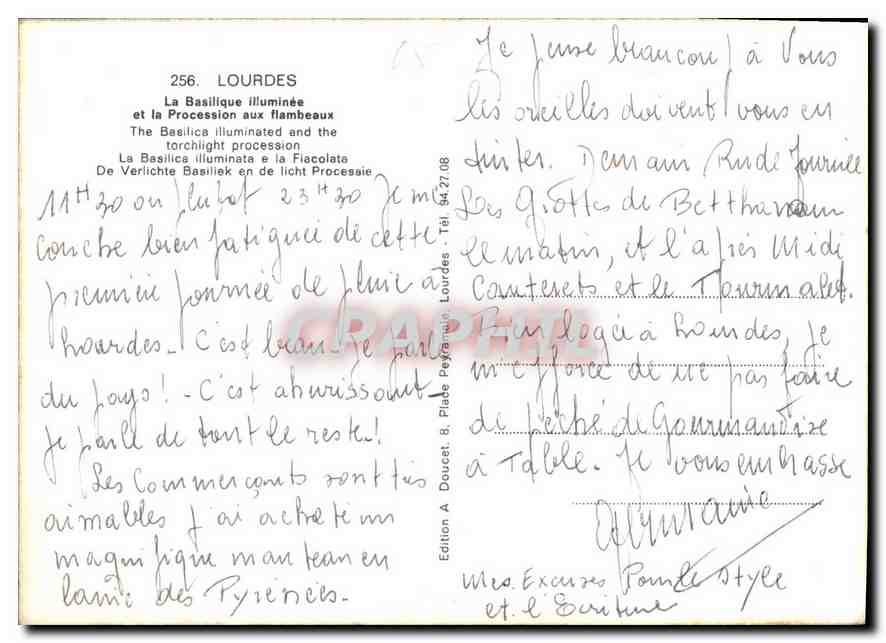 256. LOURDES
La Basilique illuminée
et la Procession aux flambeaux
The Basilica illuminated and the
torchlight procession
La Basilica illuminata e la Fiacolata
De Verlichte Basiliek en de licht Processie
11H30 ou plutot 23H30 Je me
couche bien fatiguée de cette
première journée de pluie à
Lourdes - C'est beau - Je parle
du pays! - C'est ahurissant -
Je parle de tout le reste!
Les Commerçants sont très
aimables J'ai acheté un
magnifique manteau en
laine des Pyrénées.
Edition A Doucet. 8, Place Peyramale, Lourdes - Tél. 94.27.08
Je pense beaucoup à Vous
les oreilles doivent vous en
tinter. Demain Rude Journée
Les Grottes de Bettharam
le matin, et l'après Midi
Cauterets et le Tourmalet.
Bien logée à Lourdes, Je
m'efforce de ne pas faire
de péché de Gourmandise
à Table. Je vous embrasse
Mes Excuses Pour le Style
et l'Ecriture
CRAPHIL